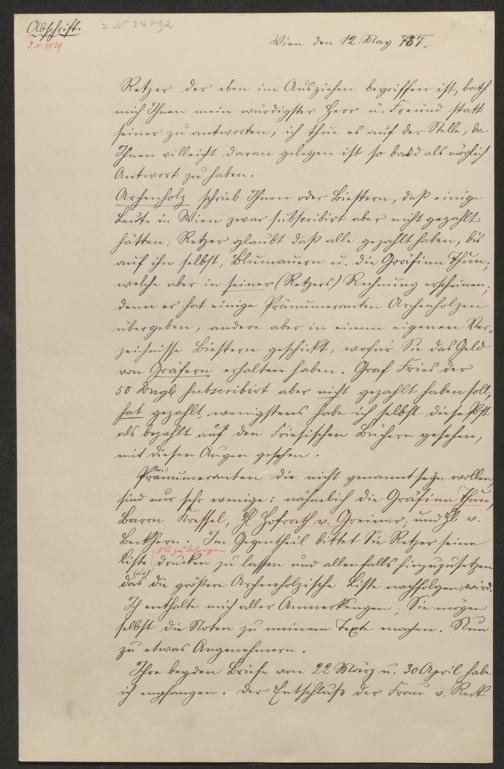 Abschrift.
Wien den 12. May 787.
Retzer der eben im Ausziehen begriffen ist, bath
mich Ihnen mein würdigster Herr u. Freund statt
seiner zu antworten, ich thue es auf der Stelle, da
Ihnen villeicht daran gelegen ist so bald als möglich
Antwort zu haben.
Archenholz schrieb Ihnen oder Biestern, daß einige
Leute in Wien zwar subscribirt aber nicht gezahlt
hätten. Retzer glaubt daß alle gezahlt haben, bis
auf ihn selbst, Blumauern u. die Gräfinn Thun,
welche aber in seiner (Retzers) Rechnung erscheinen;
denn er hat einige Pränumeranten Archenholzen
übergeben, andere aber in einem eigenen Ver-
zeichnisse Biestern geschickt, wofür Sie das Geld
von Gräfern erhalten haben. Graf Fries der
50 subscribirt aber nicht gezahlt haben soll,
hat gezahlt, wenigstens habe ich selbst dieselbst
als bezahlt auf den Friesischen Büchern gesehen,
mit diesen Augen gesehen.
Pränumeranten die nicht genannt seyn wollen,
sind nur sehr wenige: nähmlich die Gräfinn Thun,
Baron H Hofrath v. Greiner, und H v.
Im Gegentheil bittet Sie Retzer seine
Liste drucken zu lassen und allenfalls hinzuzusetzen
daß die größere Archenholzische Liste nachfolgen wird.
Ich enthalte mich aller Anmerkungen; Sie mögen
selbst die Noten zu meinem Texte machen. Nun
zu etwas Angenehmern.
Ihre beyden Briefe von 22 März u. 30 April habe
ich empfangen. Der Entschluß der Frau v. Reck